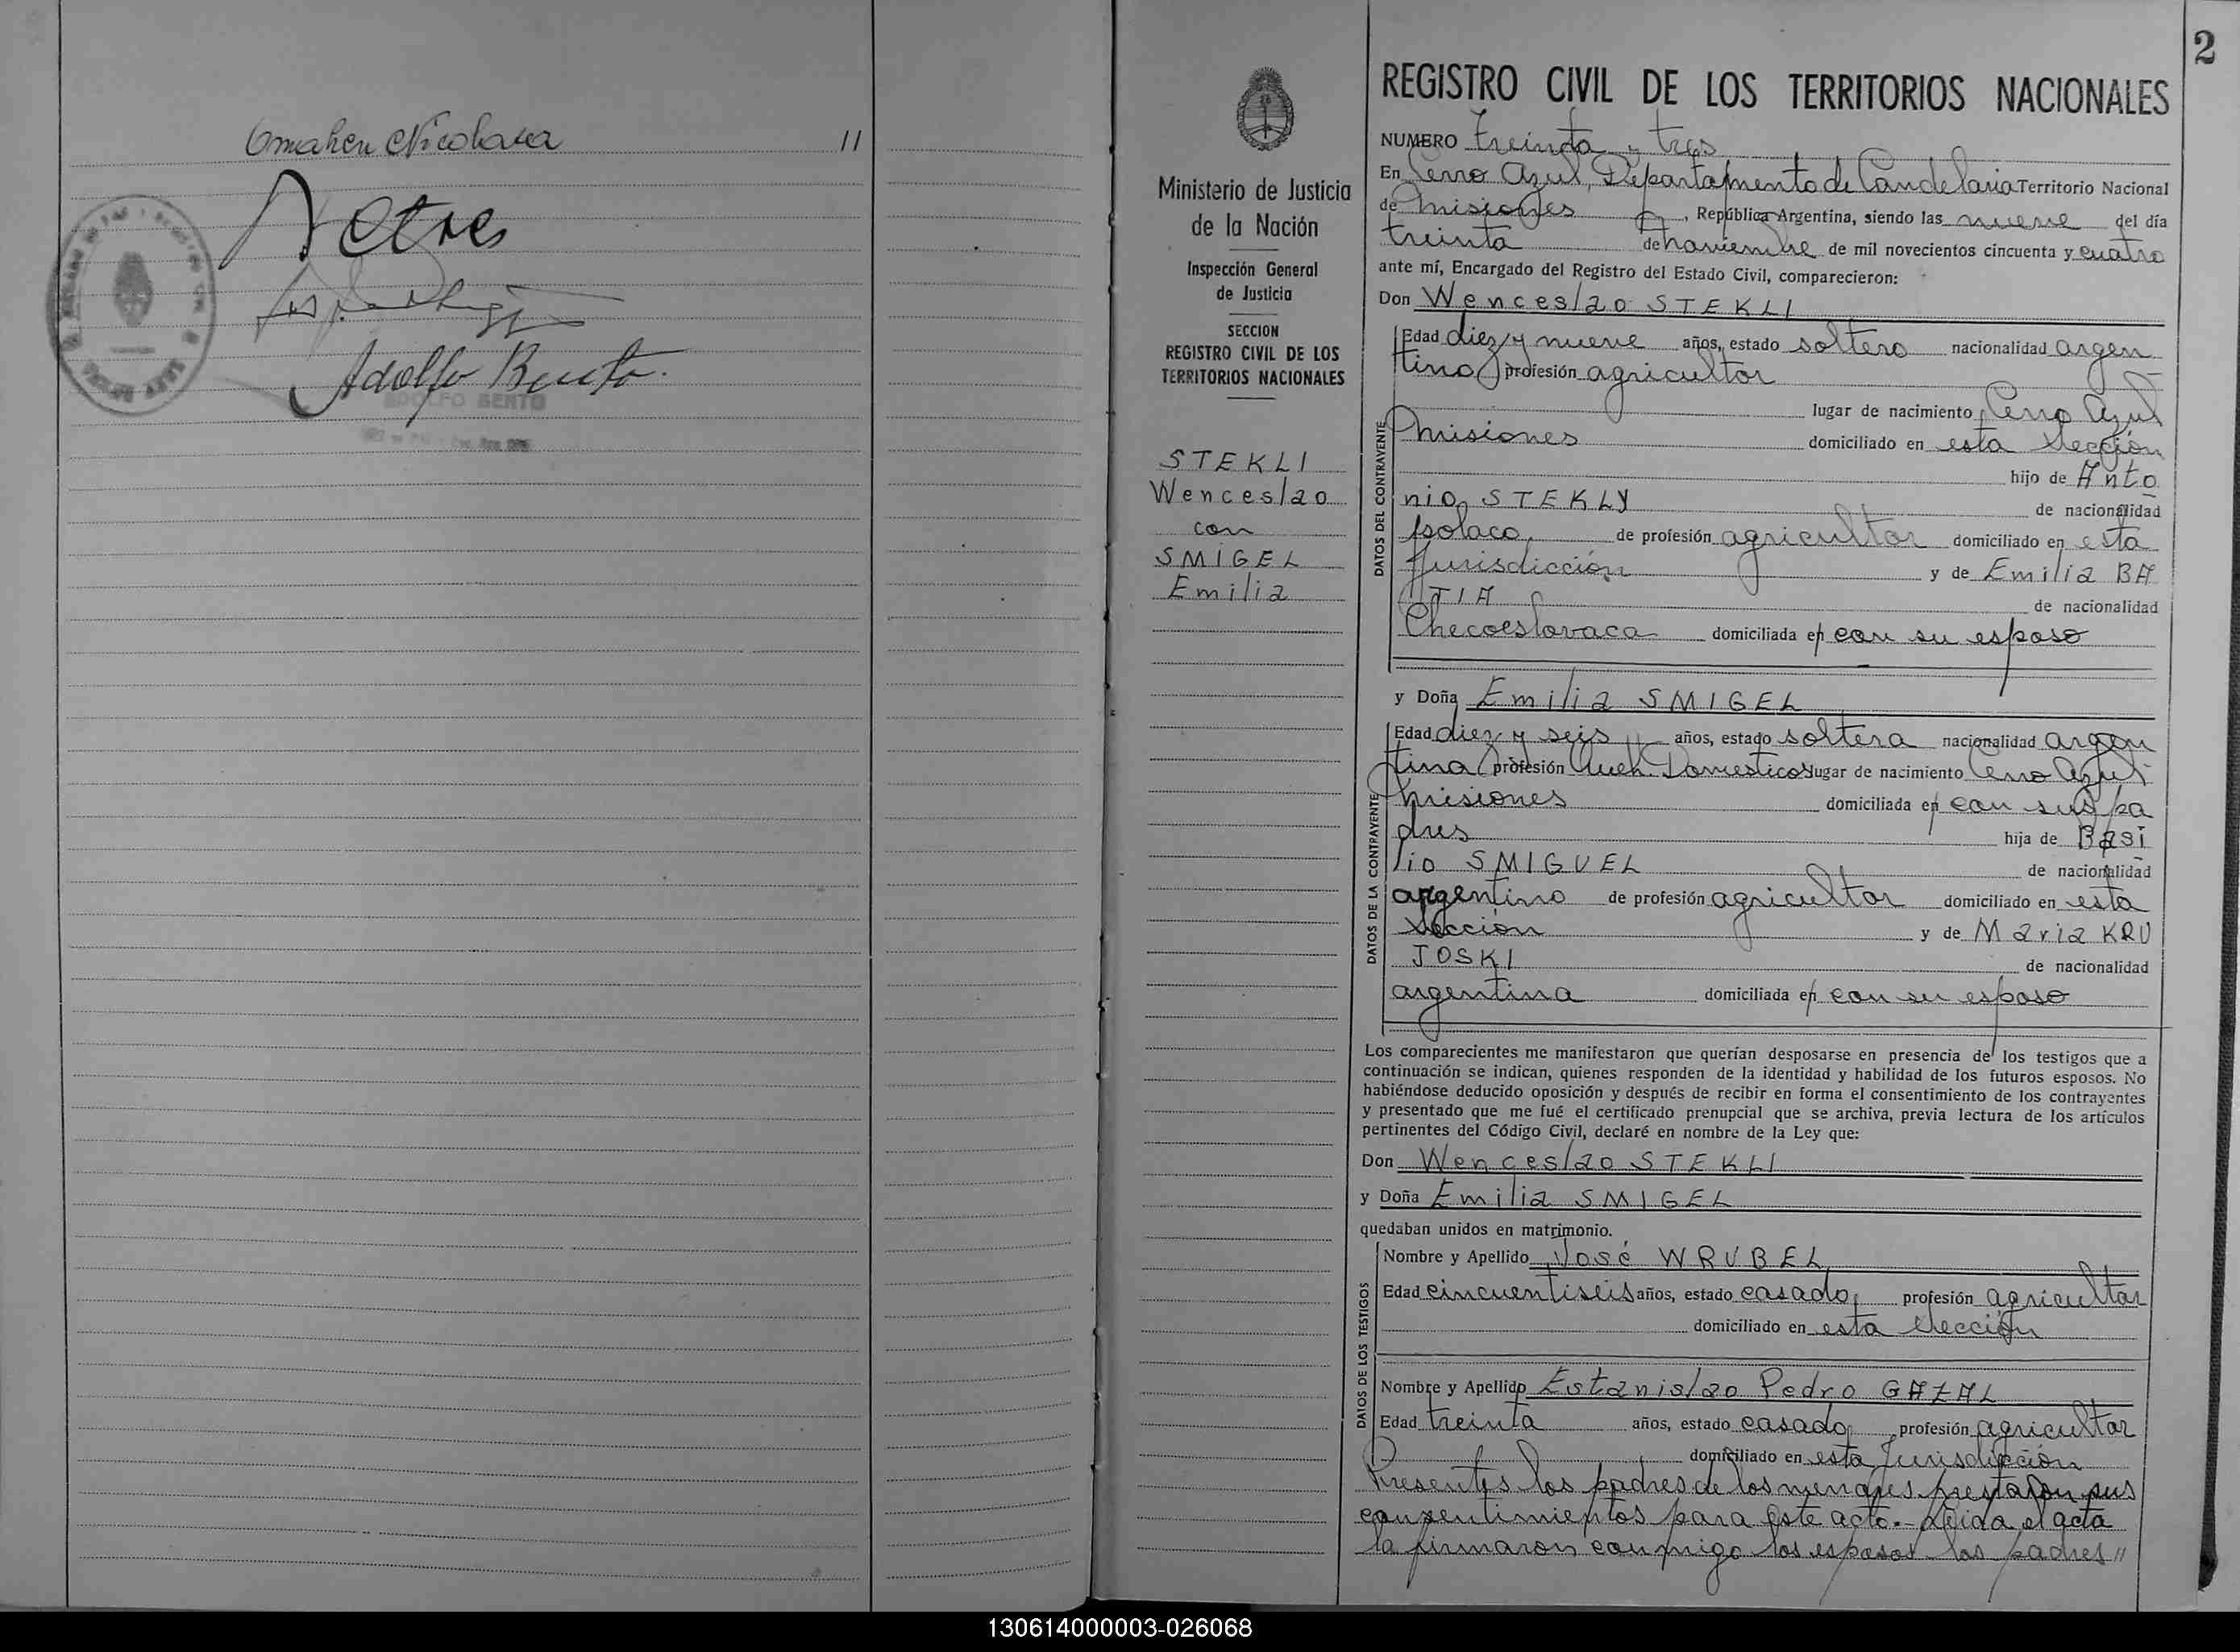 Omahen Nicolasa 11
Adolfo Bento.
ADOLFO BENTO
2
Ministerio de Justicia
de la Nación
Inspección General
de Justicia
SECCION
REGISTRO CIVIL DE LOS
TERRITORIOS NACIONALES
STEKLI
Wenceslao
con
SMIGEL
Emilia
REGISTRO CIVIL DE LOS TERRITORIOS NACIONALES
NUMERO treinta y tres
En Cerro Azul, Departamento de Candelaria Territorio Nacional
de Misiones, República Argentina, siendo las nueve del día
treinta de noviembre de mil novecientos cincuenta y cuatro
ante mí, Encargado del Registro del Estado Civil, comparecieron:
Don Wenceslao STEKLI
DATOS DEL CONTRAYENTE
Edad diez y nueve años, estado soltero nacionalidad argen
tino profesión agricultor
lugar de nacimiento Cerro Azul
Misiones domiciliado en esta Sección
hijo de Anto
nio STEKLY de nacionalidad
polaco de profesión agricultor domiciliado en esta
Jurisdicción y de Emilia BA
TIA de nacionalidad
Checoeslovaca domiciliada en con su esposo
y Doña Emilia SMIGEL
DATOS DE LA CONTRAYENTE
Edad diez y seis años, estado soltera nacionalidad argen
tina profesión Queh. Domesticos lugar de nacimiento Cerro Azul
Misiones domiciliada en con sus pa
dres hija de Basi
lio SMIGUEL de nacionalidad
argentino de profesión agricultor domiciliado en esta
Sección y de Maria KRU
JOSKI de nacionalidad
argentina domiciliada en con su esposo
Los comparecientes me manifestaron que querían desposarse en presencia de los testigos que a
continuación se indican, quienes responden de la identidad y habilidad de los futuros esposos. No
habiéndose deducido oposición y después de recibir en forma el consentimiento de los contrayentes
y presentado que me fué el certificado prenupcial que se archiva, previa lectura de los artículos
pertinentes del Código Civil, declaré en nombre de la Ley que:
Don Wenceslao STEKLI
y Doña Emilia SMIGEL
quedaban unidos en matrimonio.
DATOS DE LOS TESTIGOS
Nombre y Apellido José WRUBEL
Edad cincuentiseis años, estado casado profesión agricultor
domiciliado en esta Sección
Nombre y Apellido Estanislao Pedro GAZAL
Edad treinta años, estado casado profesión agricultor
domiciliado en esta Jurisdicción
Presentes los padres de los menores prestaron sus
consentimientos para este acto.- Leida el acta
la firmaron conmigo los esposos los padres "
130614000003-026068